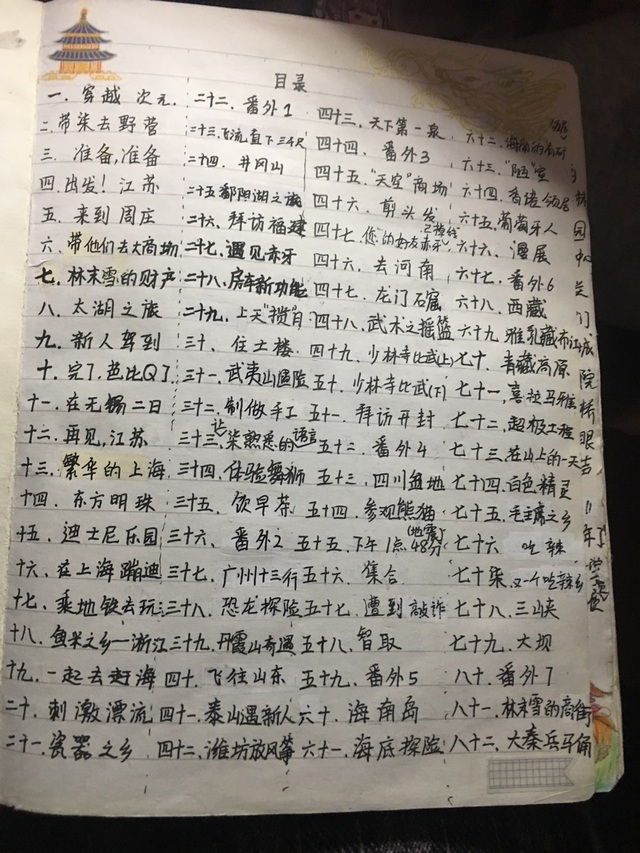 目录
一．穿越 次元．
二．带柒去野营
三．准备,准备
四．出发！江苏
五．来到 周庄
六．带他们去大商场
七．林末雪的财产
八．太湖之旅
九．新人驾到
十．完了,芭比Q了
十一．在无锡二日
十二．再见,江苏
十三．繁华的上海
十四．东方明珠
十五．迪士尼乐园
十六．在上海蹦迪
十七．乘地铁去玩
十八．鱼米之乡—浙江
十九．一起去赶海
二十．刺激漂流
二十一．瓷器之乡
二十二．番外1
二十三．飞流直下三千尺
二十四．井冈山
二十五．鄱阳湖之旅
二十六．拜访福建
二十七．遇见赤牙
二十八．房车新功能
二十九．上天“揽”月
三十．住土楼
三十一．武夷山遇险
三十二．制做手工
三十三．让柒熟悉的语言
三十四．体验舞狮
三十五．饮早茶
三十六．番外2
三十七．广州十三行
三十八．恐龙探险
三十九．丹霞山奇遇
四十．飞往山东
四十一．泰山遇新人
四十二．潍坊放风筝
四十三．天下第一泉
四十四．番外3
四十五．“天空”商场
四十六．剪头发
四十七．您的好友赤牙已接线
四十六．去河南
四十七．龙门石窟
四十八．武术之摇篮
四十九．少林寺比武(上)
五十．少林寺比武(下)
五十一．拜访开封
五十二．番外4
五十三．四川盆地
五十四．参观熊猫
五十五．下午1点48分(地震了)
五十六．集合
五十七．遭到敲诈
五十八．智取
五十九．番外5
六十．海南岛
六十一．海底探险
六十二．海南的
六十三．“陋”室
六十四．香港领居
六十五．葡萄牙人
六十六．漫展
六十七．番外6
六十八．西藏
六十九．雅乳藏布江
七十．青藏高原
七十一．喜拉马雅
七十二．超极工程
七十三．在山上的一天
七十四．白色精灵
七十五．毛主席之乡
七十六 吃辣
七十柒．又一个吃辣乡
七十八．三峡
七十九．大坝
八十．番外7
八十一．林末雪的商街
八十二．大秦兵马俑